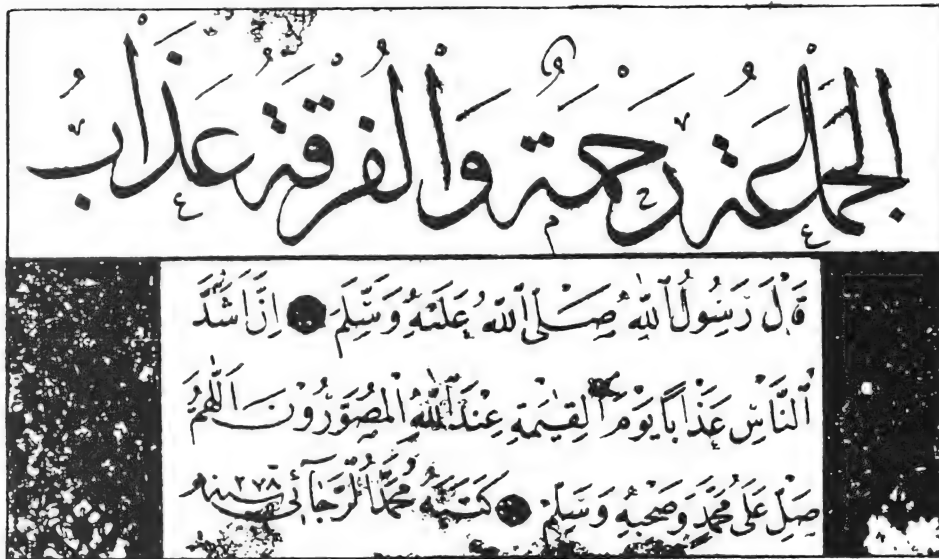 الجَمَاعَةُ رَحْمَةٌ وَالْفُرْقَةُ عَذَابٌ
قَالَ رَسُولُ اللهِ صَلَّى اللهُ عَلَيْهِ وَسَلَّمَ اِنَّ اَشَدَّ
النَّاسِ عَذَابًا يَوْمَ الْقِيٰمَةِ عِنْدَ اللهِ الْمُصَوِّرُونَ اَللّٰهُمَّ
صَلِّ عَلَى مُحَمَّدٍ وَصَحْبِهِ وَسَلِّمْ كَتَبَهُ مُحَمَّدُ الرَّجَائِي سنه ٢٧٨